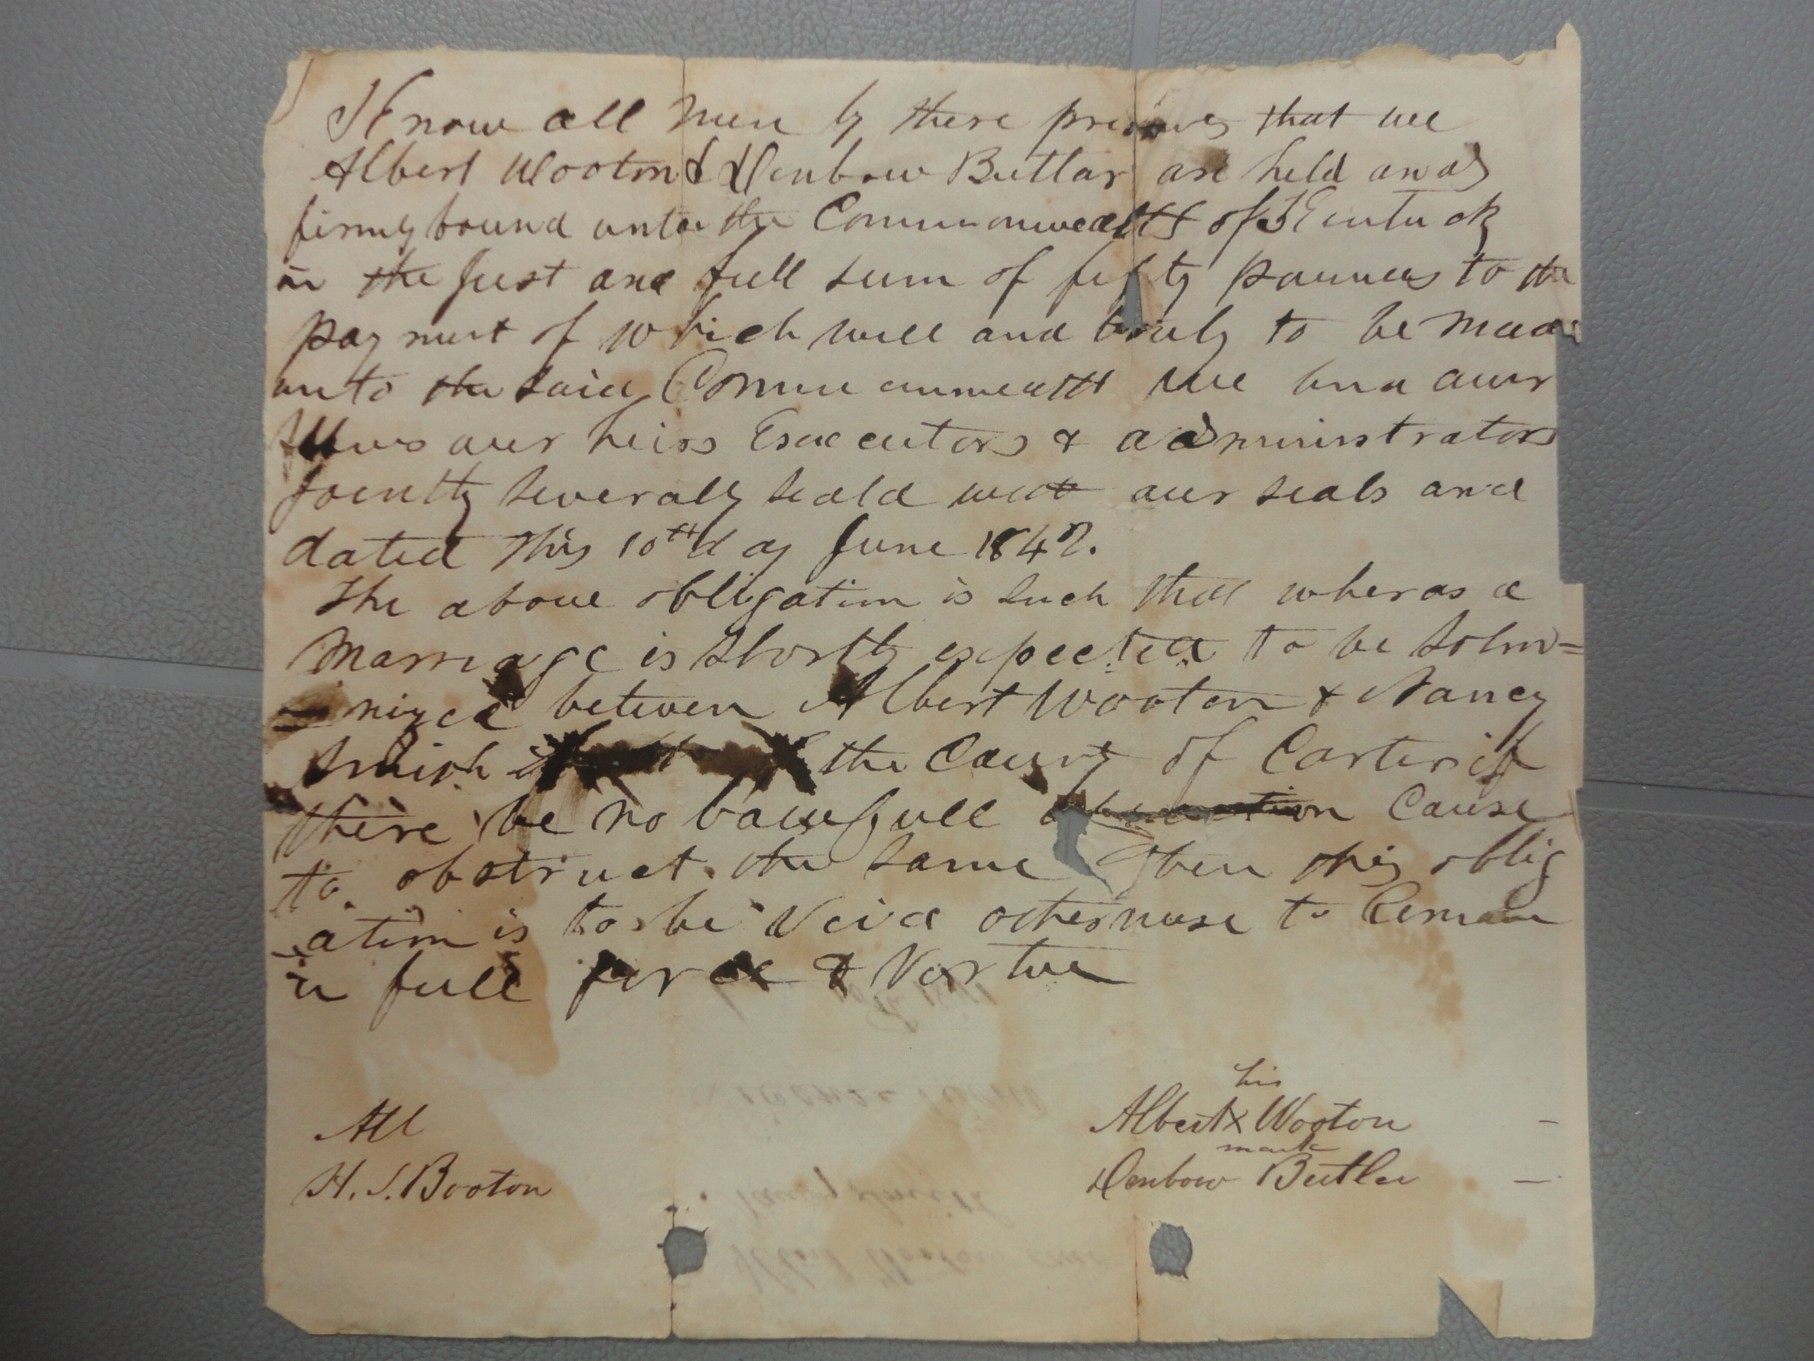 Know all men by these presents that we
Albert Wooton & Denbow Butlar are held and
firmly bound unto the Commonwealth of Kentucky
in the Just and full sum of fifty pounds to the
payment of which well and truly to be made
unto the said Commonwealth we bind our
selves our heirs Executors & administrators
Joently severally seald with our seals and
dated this 10th day June 1842.
The above obligation is such that wheras a
Marriage is shortly expected to be solm=
=nized between Albert Wooton & Nancy
Smith the County of Carter if
there be no lawfull Cause
to obstruct the same Then this oblig
ation is to be void otherwise to Remain
in full force & Vertue
Att
H. S. Booton
his
Albert X Wooton
mark
Denbow Butler